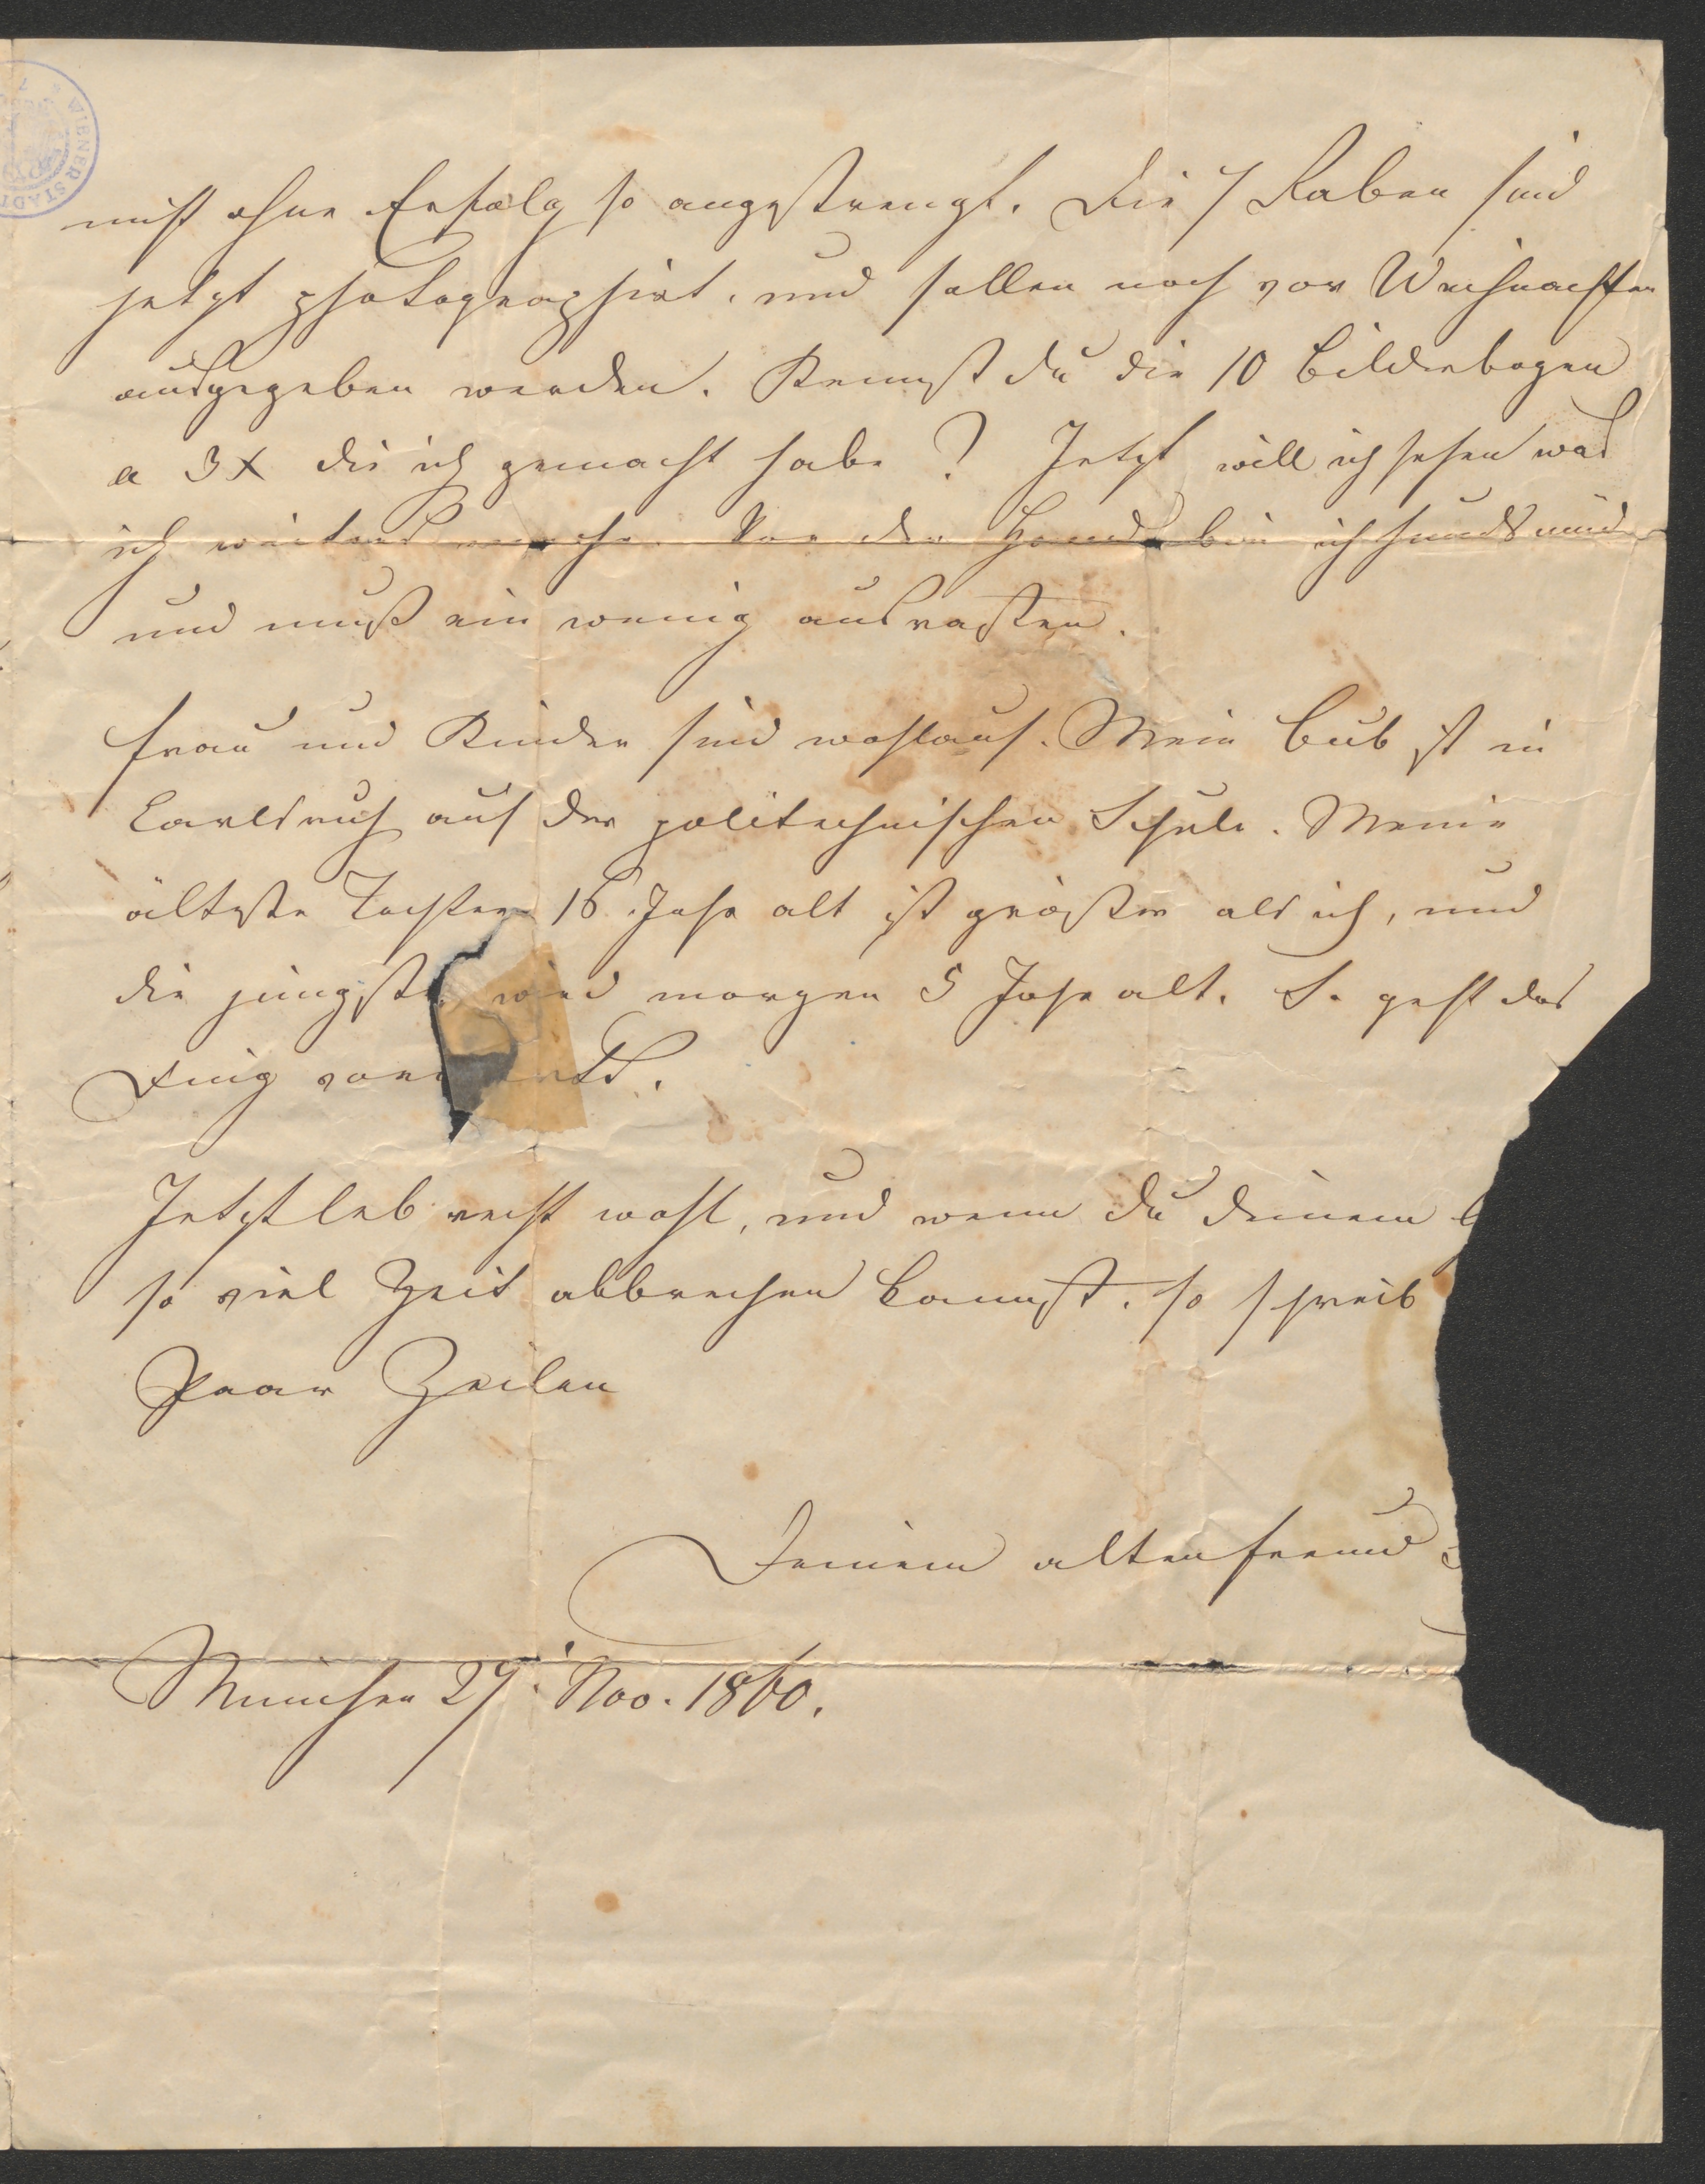 WIENER STADT
nicht ohne Erfolg so angestrengt. Die 7 Raben sind
jetzt photographirt, und sollen noch vor Weihnachten
ausgegeben werden. Kennst du die 10 Bilderbogen
a 3x die ich gemacht habe? Jetzt will ich sehen was
ich weiters mache. Vor der Hand bin ich hundsmüde
und muß ein wenig ausrasten.
Frau und Kinder sind wohlauf. Mein Bub ist in
Carlsruh auf der politechnischen Schule. Meine
älteste Tochter 16 Jahr alt ist größer als ich, und
die jüngste wird morgen 5 Jahr alt. So geht das
Ding
Jetzt leb recht wohl, und wenn du deinem
so viel Zeit abbrechen kannst, so schreib
Paar Zeilen
Deinem alten Freund
München 27. Nov. 1860.